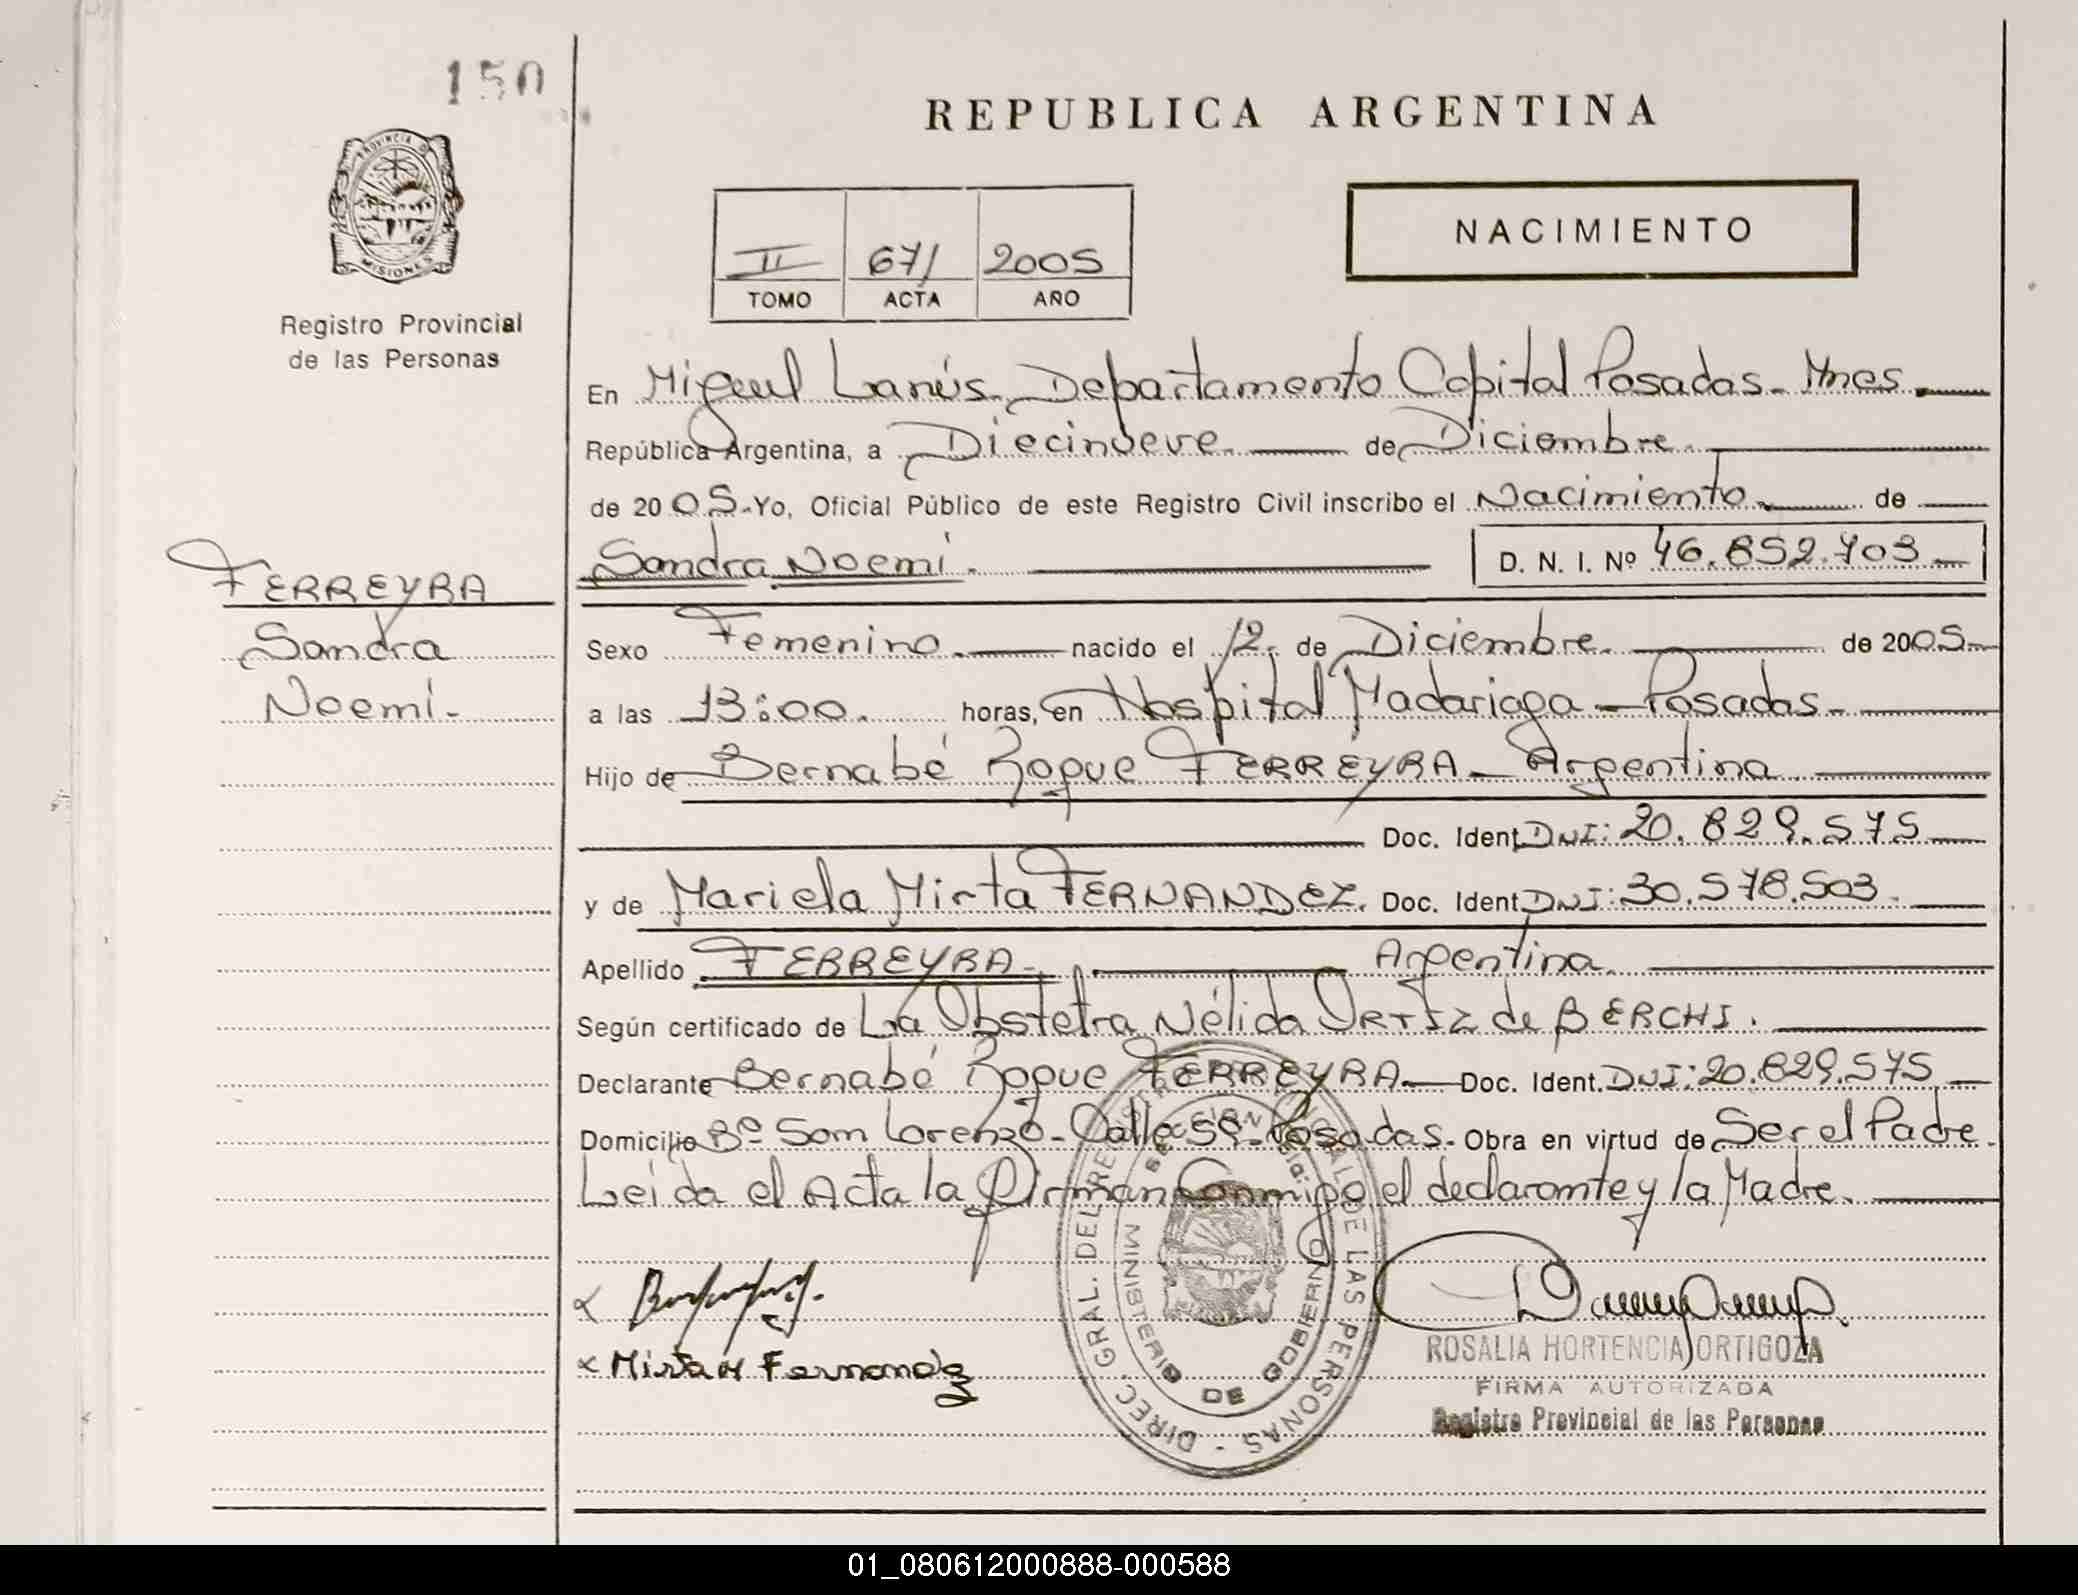 150
REPUBLICA ARGENTINA
PROVINCIA D
MISIONES
Registro Provincial
de las Personas
NACIMIENTO
II 671 2005
TOMO ACTA AÑO
En Miguel Lanús. Departamento Capital Posadas - Mnes.
República Argentina, a Diecinueve. de Diciembre.
de 2005. Yo, Oficial Público de este Registro Civil inscribo el Nacimiento de
Sandra Noemí. D. N. I. Nº 46.852.703
FERREYRA
Sandra
Noemí.-
Sexo Femenino. nacido el 12. de Diciembre. de 2005
a las 13:00. horas, en Hospital Madariaga - Posadas -
Hijo de Bernabé Roque FERREYRA - Argentina
Doc. Ident. DNI: 20.829.575
y de Mariela Mirta FERNANDEZ. Doc. Ident. DNI: 30.578.503
Apellido FERREYRA - Argentina.
Según certificado de La Obstetra Nélida ORTIZ de BERCHI.
Declarante Bernabé Roque FERREYRA - Doc. Ident. DNI: 20.829.575
Domicilio Bº San Lorenzo - Calle 59 - Posadas - Obra en virtud de Ser el Padre.
Leída el Acta la Firman Conmigo el declarante y la Madre.
x Mirta M Fernandez
DIREC. GRAL. DEL REG. DE LAS PERSONAS - MINISTERIO DE GOBIERNO
ROSALIA HORTENCIA ORTIGOZA
FIRMA AUTORIZADA
Registro Provincial de las Personas
01_080612000888-000588